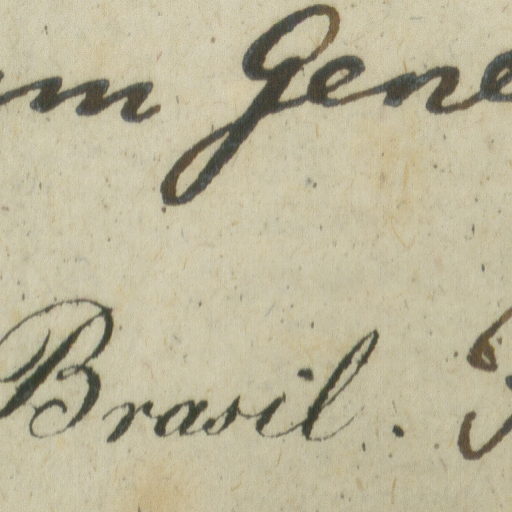 um Gene
Brasil.